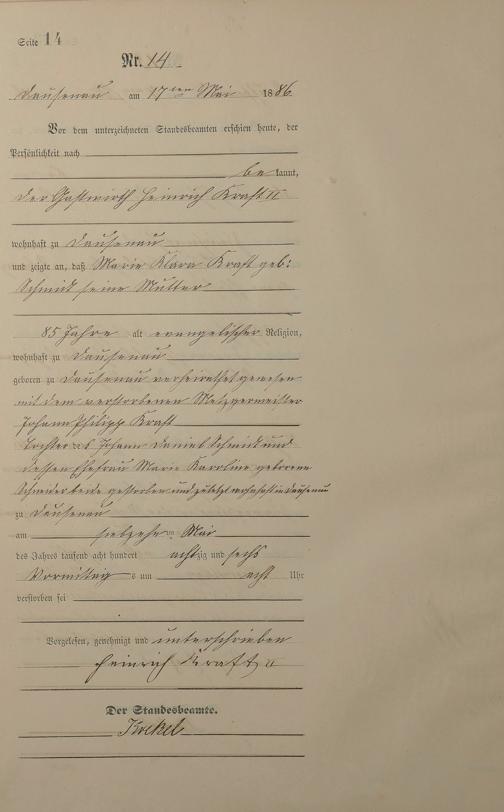 Seite 14
Nr. 14
Dausenau am 17ten Mai 1886
Vor dem unterzeichneten Standesbeamten erschien heute, der
Persönlichkeit nach
be kannt,
der Gastwirth Heinrich Kraft II
wohnhaft zu Dausenau
und zeigte an, daß Marie Klara Kraft geb:
Schmidt seine Mutter
85 Jahre alt evangelischer Religion,
wohnhaft zu Dausenau
geboren zu Dausenau verheirathet gewesen
mit dem verstorbenen Metzgermeister
Johann Philipp Kraft
Tochter des Johann Daniel Schmidt und
dessen Ehefrau Marie Karoline geborene
Schneider beide gestorben und zuletzt wohnhaft in Dausenau
zu Dausenau
am siebzehn ten Mai
des Jahres tausend acht hundert achtzig und sechs
Vormittags um acht Uhr
verstorben sei
Vorgelesen, genehmigt und unterschrieben
Heinrich Kraft II
Der Standesbeamte.
Krekel